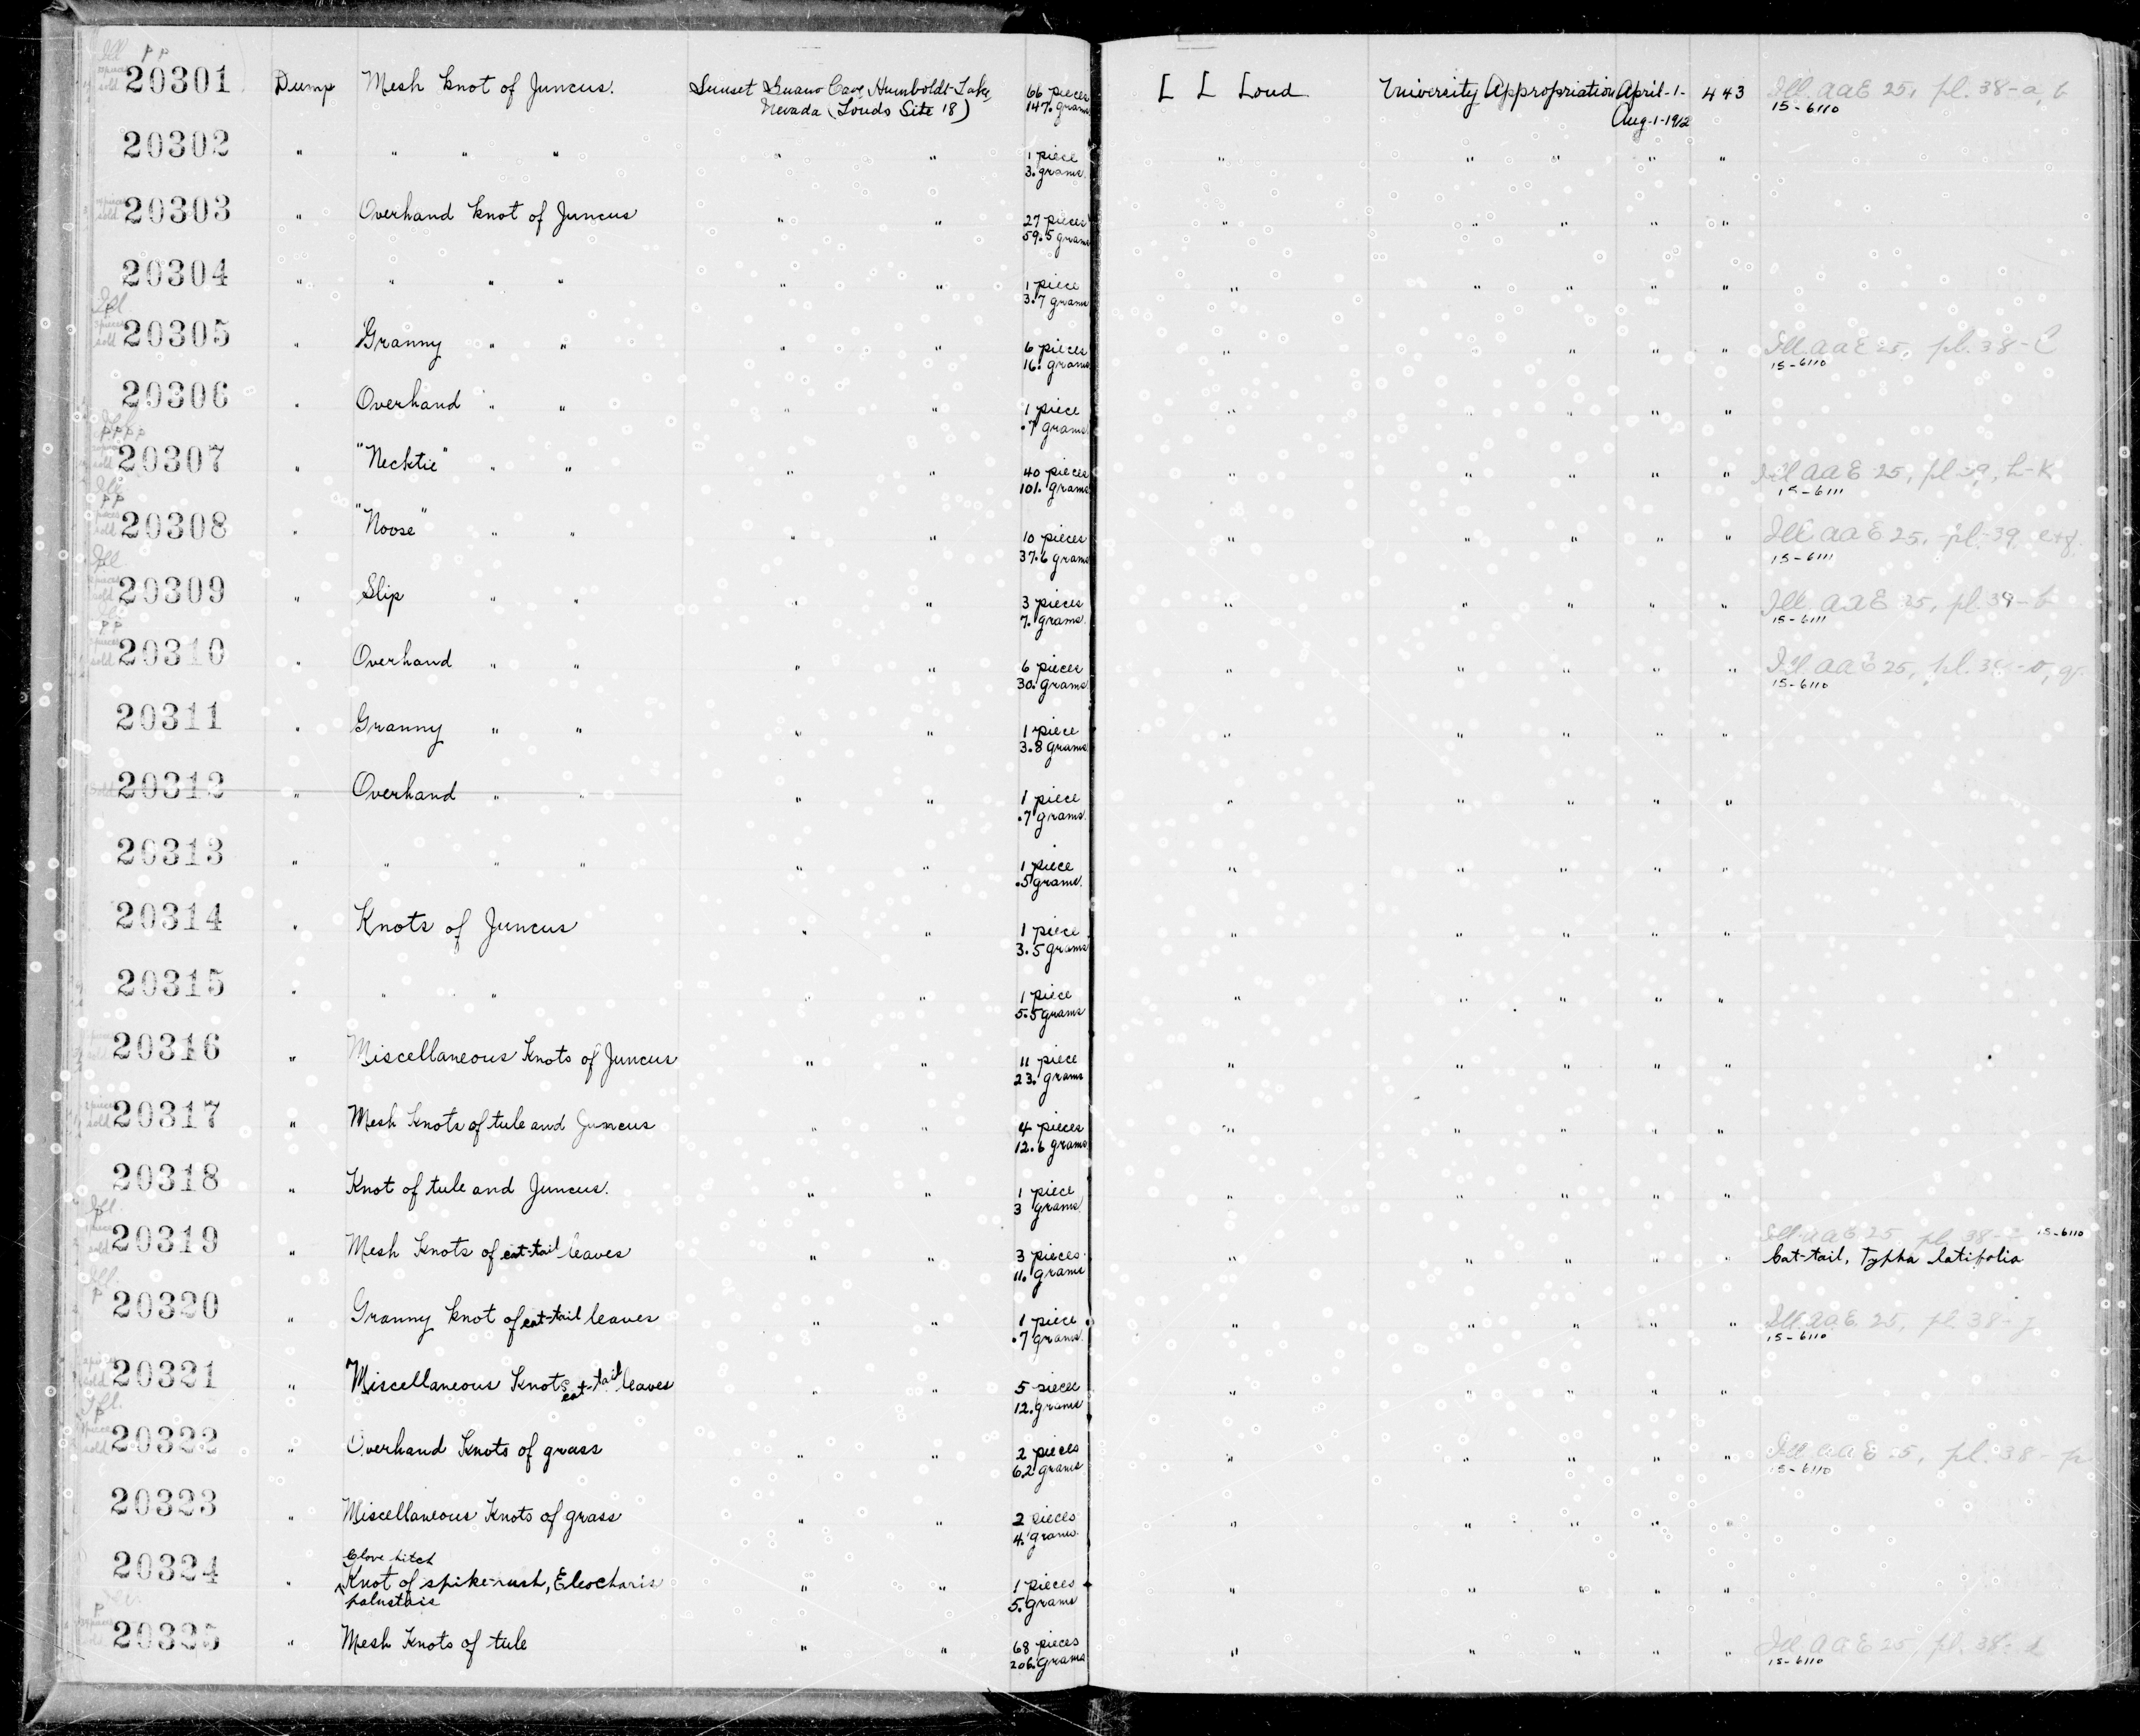 Ill p p
20301 Dump Mesh knot of Juncus. Sunset Guano Cave, Humboldt Lake, 66 pieces L L Loud University Appropriation April-1- 443 Ill. aaE 25, pl. 38-a, b
Nevada (Louds Site 18) 147. grams Aug-1-1912 15-6110
20302 " " " " " " 1 piece " " " " "
3. grams.
20303 " Overhand knot of Juncus " " 27 pieces " " " " "
59.5 grams
20304 " " " " " " 1 piece " " " " "
3.7 grams
Ill
p
3 pieces
sold
20305 " Granny " " " " 6 pieces " " " " Ill. aaE 25, pl. 38-C
16. grams 15-6110
20306 " Overhand " " " " 1 piece " " " " "
.7 grams
p p p p
20307 " "Necktie" " " " " 40 pieces " " " " " Ill aaE 25, pl 39, h-k
101. grams 15-6111
Ill
p p
20308 " "Noose" " " " " 10 pieces " " " " " Ill. aaE 25. pl. 39 e+f.
37.6 grams 15-6111
Ill
20309 " Slip " " " " 3 pieces " " " " " Ill. aaE 25, pl. 39-b
7. grams. 15-6111
p p
20310 " Overhand " " " " 6 pieces " " " " " Ill. aaE 25, pl. 38-o, q.
30. grams 15-6110
20311 " Granny " " " " 1 piece " " " " "
3.8 grams
sold 20312 " Overhand " " " " 1 piece " " " " "
.7 grams.
20313 " " " " " " 1 piece " " " " "
.5 grams.
20314 " Knots of Juncus " " 1 piece " " " " "
3.5 grams
20315 " " " " " 1 piece " " " " "
5.5 grams
20316 " Miscellaneous Knots of Juncus " " 11 piece " " " " "
23. grams
sold 20317 " Mesh knots of tule and Juncus " " 4 pieces " " " " "
12.6 grams
20318 " Knot of tule and Juncus. " " 1 piece " " " " "
3 grams
Ill.
20319 " Mesh Knots of cat-tail leaves " " 3 pieces " " " " " Ill. aaE 25, pl. 38- 15-6110
11. grams Cat-tail, Typha latifolia
Ill.
p
20320 " Granny knot of cat-tail leaves " " 1 piece " " " " " Ill. aaE. 25, pl 38-j
.7 grams. 15-6110
sold 20321 " Miscellaneous Knots cat-tail leaves " " 5 piece " " " " "
12. grams
Ill.
p
sold 20322 " Overhand Knots of grass " " 2 pieces " " " " " Ill. aaE 25, pl. 38-p
6.2 grams 15-6110
20323 " Miscellaneous Knots of grass " " 2 pieces " " " " "
4. grams.
Clove hitch
20324 " Knot of spike-rush, Eleocharis " " 1 pieces " " " " "
palustris 5. grams
p
20325 " Mesh Knots of tule " " 68 pieces " " " " " Ill aaE 25, pl. 38-d
206. grams 15-6110